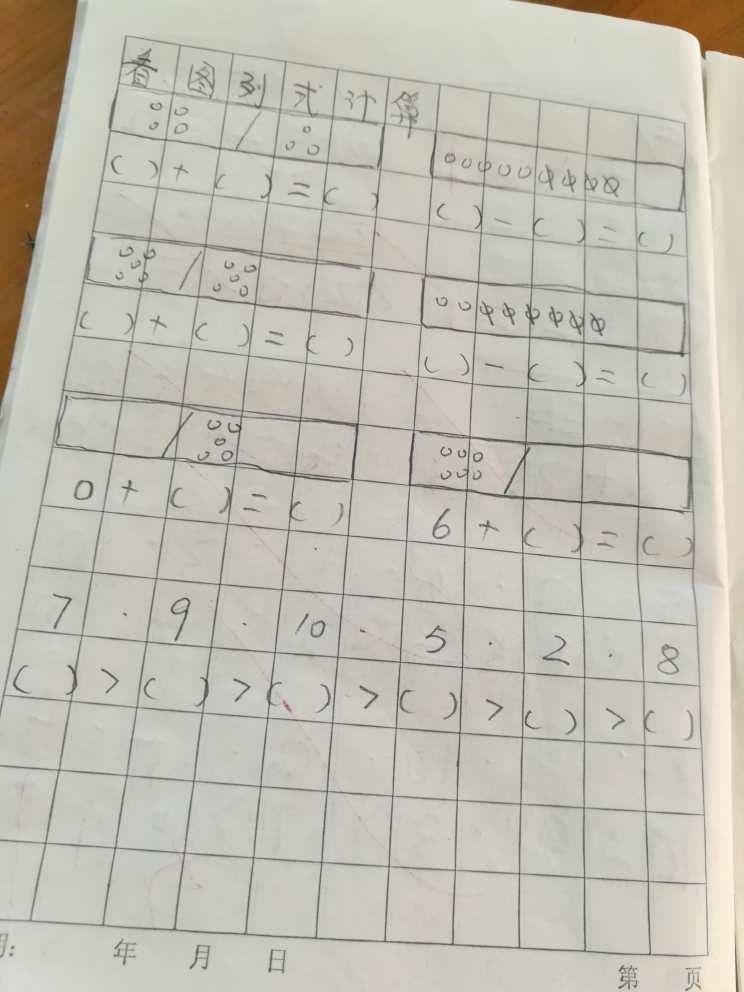 看图列式计算
( ) + ( ) = ( )
( ) - ( ) = ( )
( ) + ( ) = ( )
( ) - ( ) = ( )
0 + ( ) = ( )
6 + ( ) = ( )
7 . 9 . 10 . 5 . 2 . 8
( ) > ( ) > ( ) > ( ) > ( ) > ( )
期: 年 月 日
第 页